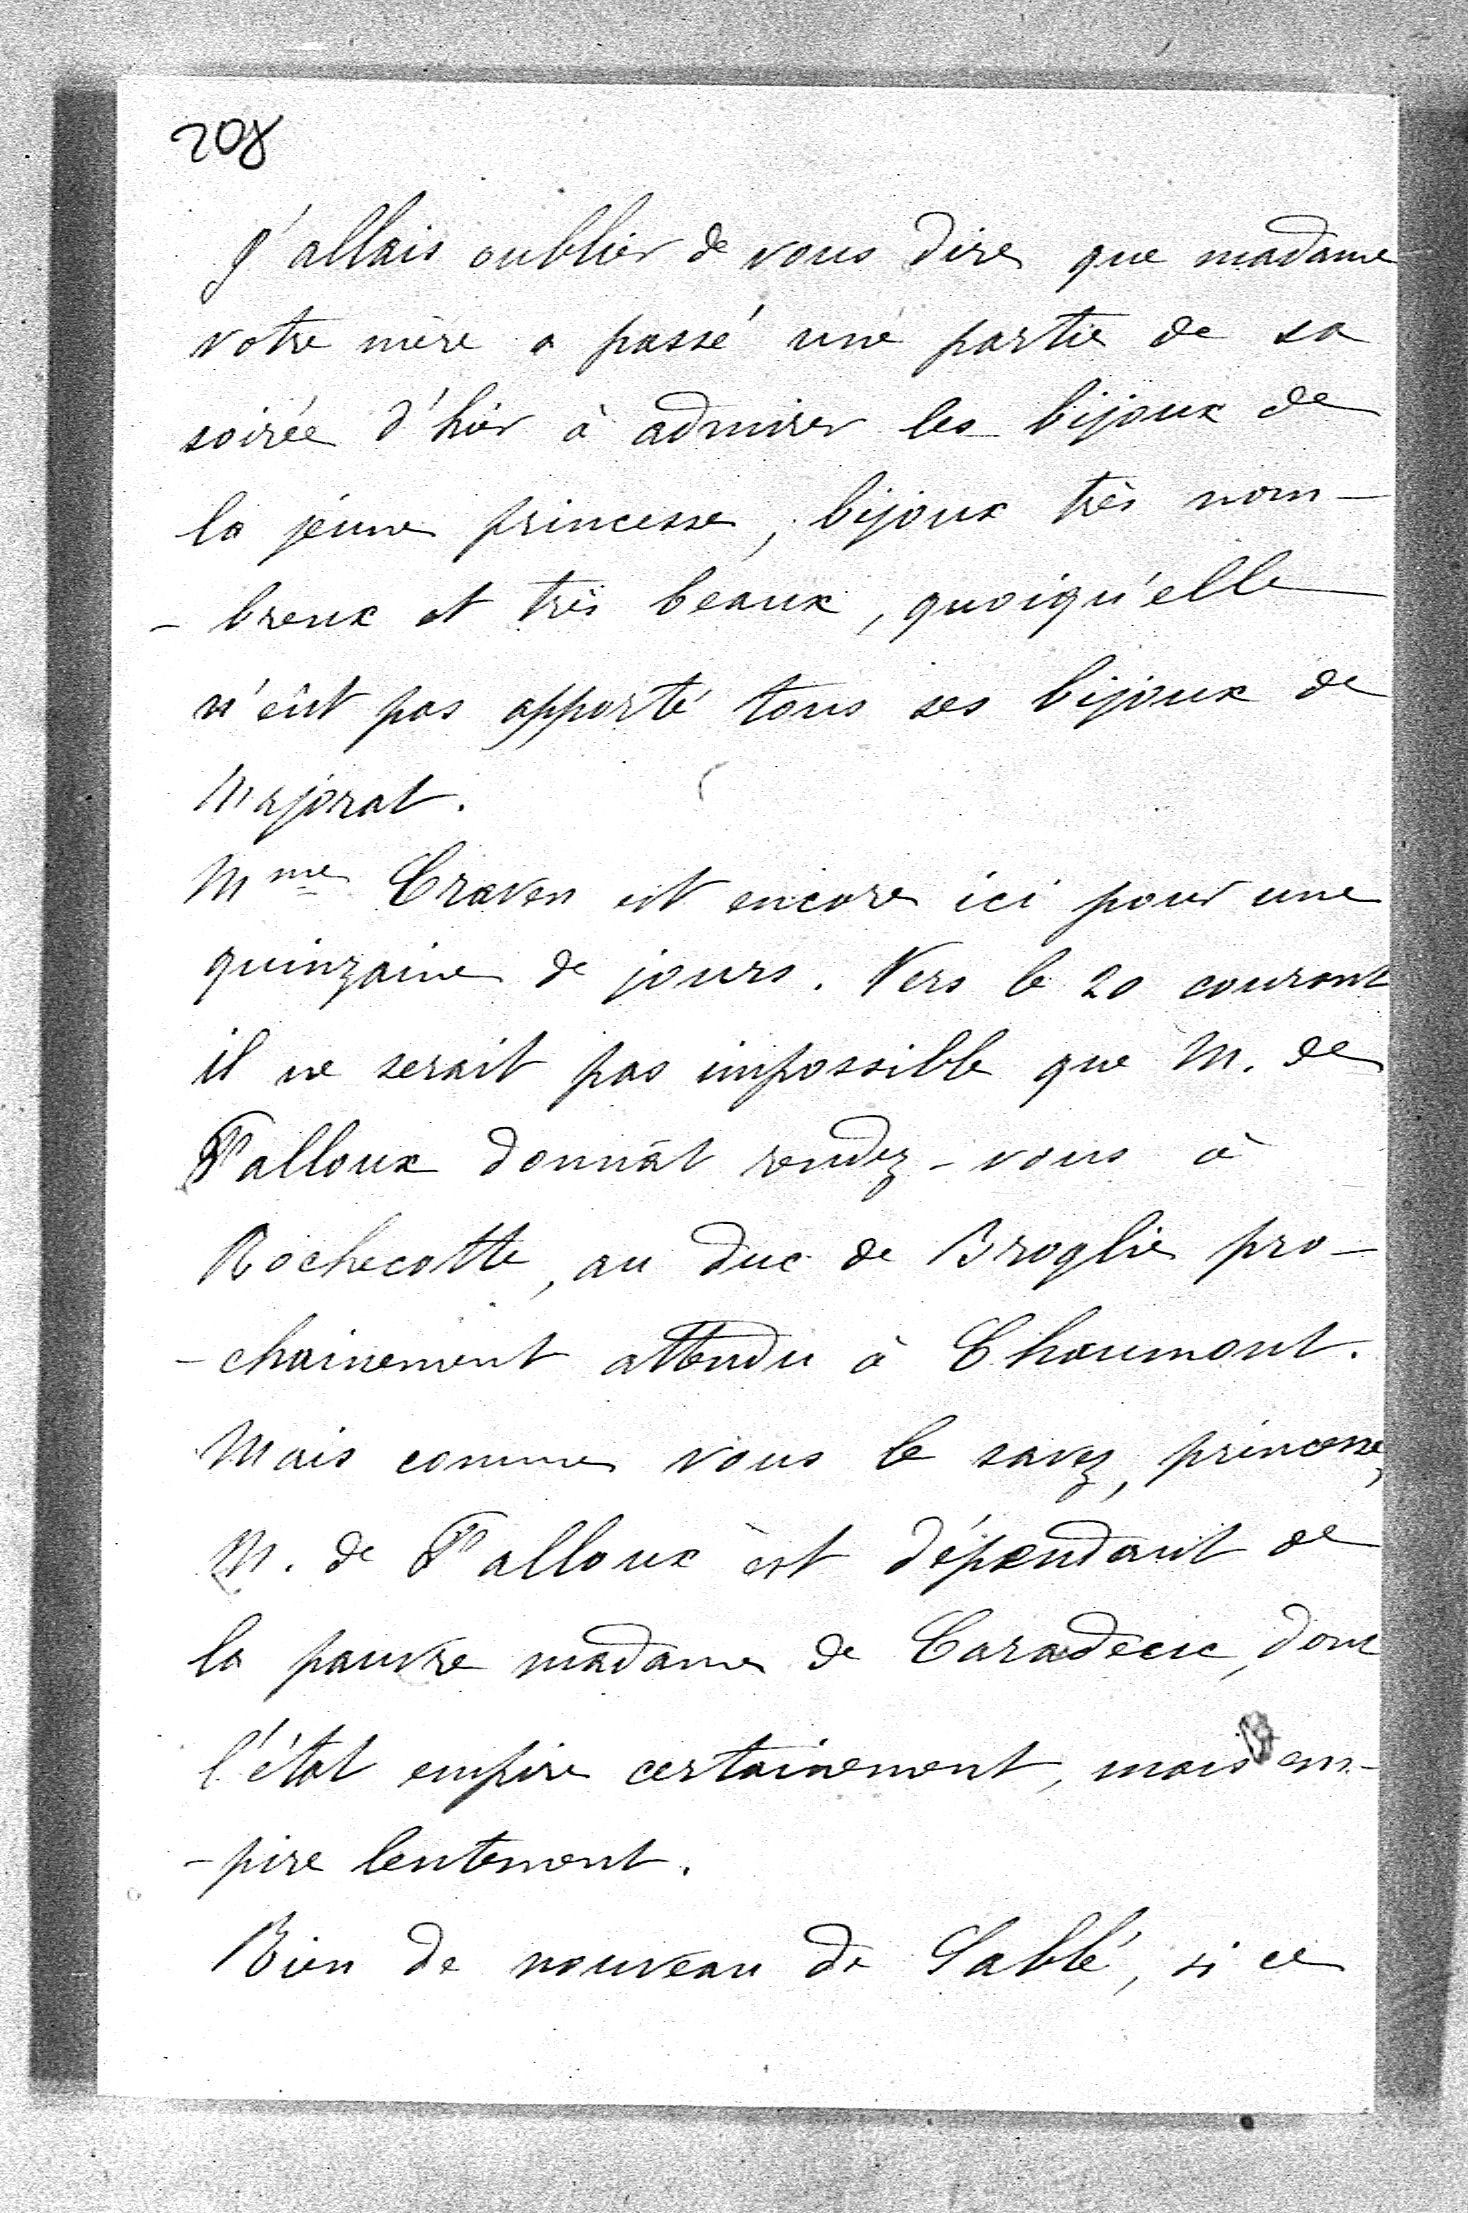 208
J'allais oublier de vous dire que madame
votre mère a passé une partie de sa
soirée d'hier à admirer les bijoux de
la jeune princesse, bijoux très nom-
-breux et très beaux, quoiqu'elle
n'eût pas apporté tous ses bijoux de
Majorat.
Mme Craven est encore ici pour une
quinzaine de jours. Vers le 20 courant
il ne serait pas impossible que M. de
Falloux donnât rendez-vous à
Rochecotte, au duc de Broglie pro-
-chainement attendu à Chaumont.
Mais comme vous le savez, princesse,
M. de Falloux est dépendant de
la pauvre madame de Caradeuc, dont
l'état empire certainement, mais em-
-pire lentement.
Rien de nouveau de Sablé, si ce